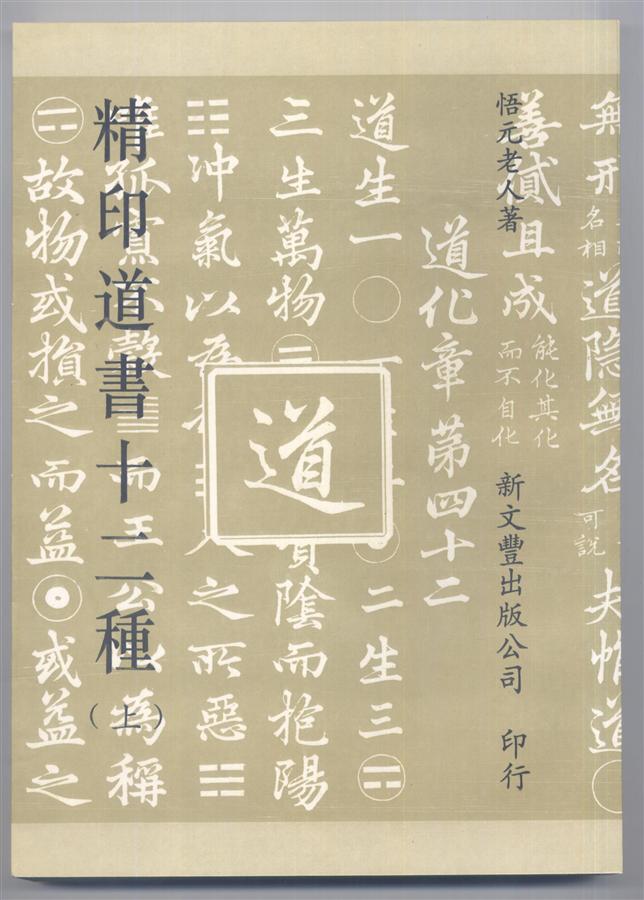 無形
名相
道隱無名
可說
夫惟道
善貸且成
能化其化
而不自化
悟元老人著
新文豐出版公司 印行
道化章第四十二
道生一
二生三
三生萬物
負陰而抱陽
沖氣以為
之所惡
孤寡不穀而王公以為稱
精印道書十二種
(上)
故物或損之而益或益之
道